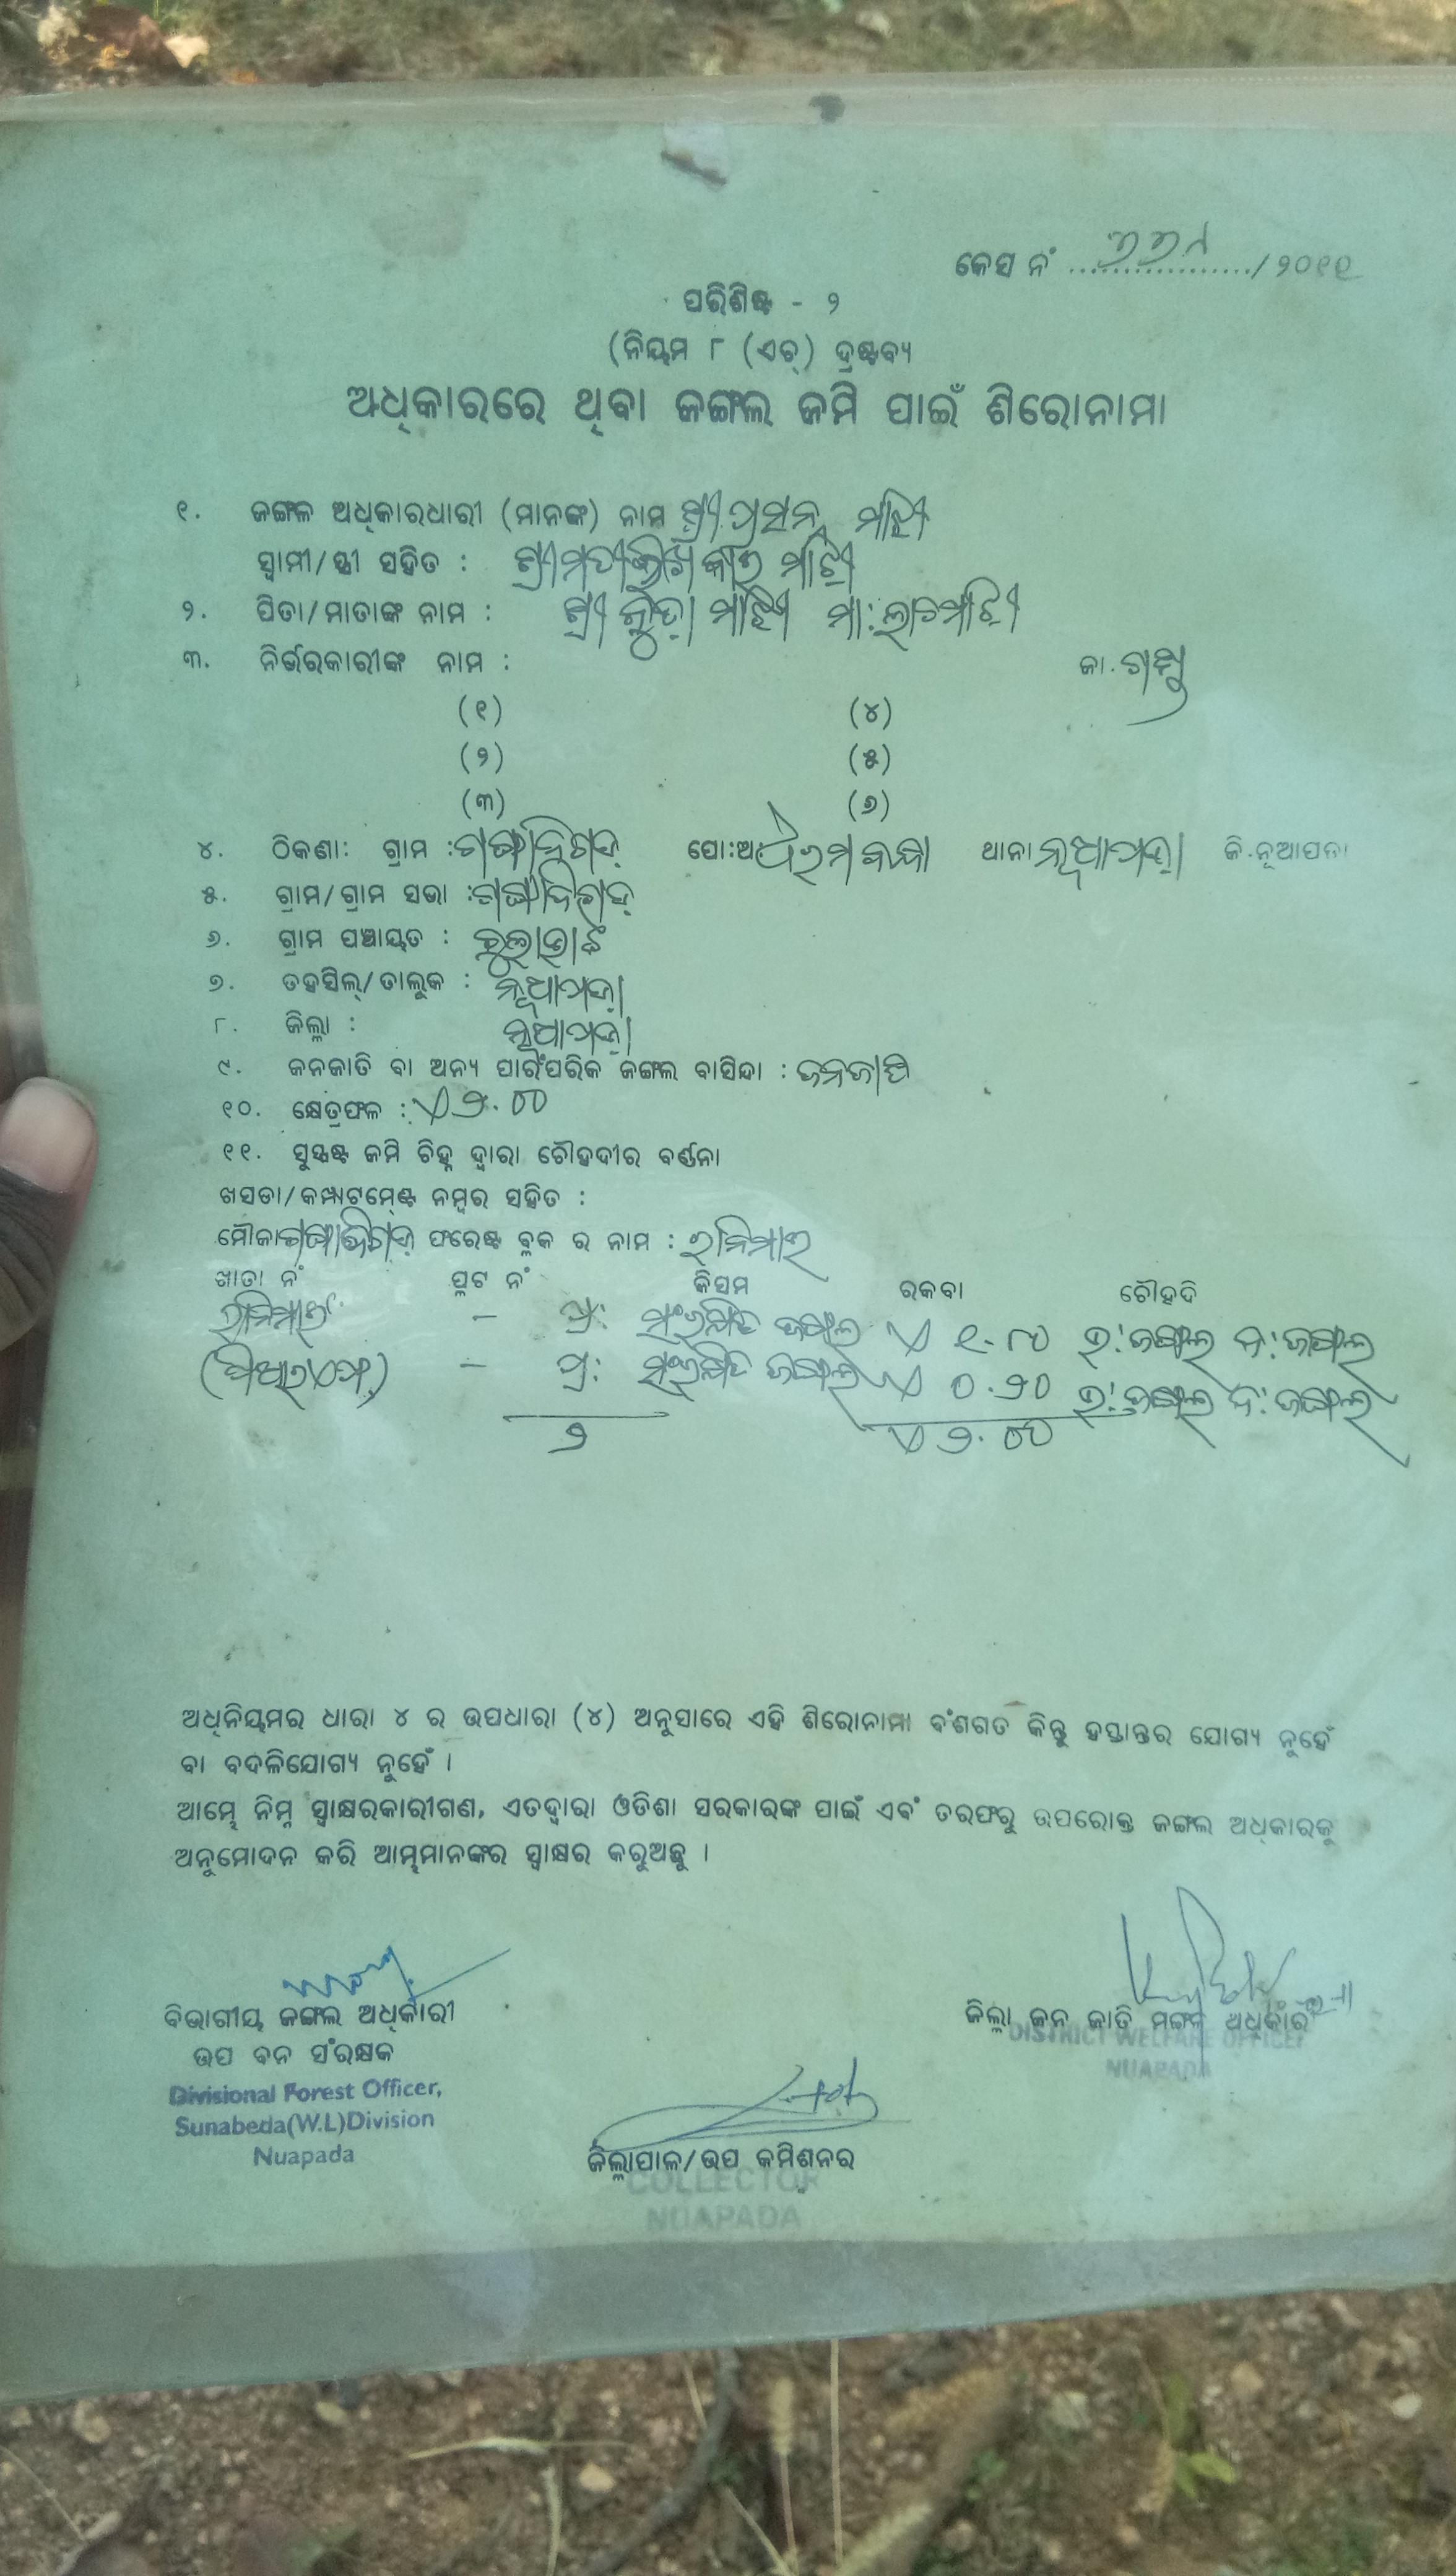 କେସ ନଂ ................../ ୨୦୧୧
ପରିଶିଷ୍ଟ - ୨
(ନିୟମ ୮ (ଏଚ୍) ଦ୍ରଷ୍ଟବ୍ୟ
ଅଧିକାରରେ ଥିବା ଜଙ୍ଗଲ ଜମି ପାଇଁ ଶିରୋନାମା
୧. ଜଙ୍ଗଲ ଅଧିକାରଧାରୀ (ମାନଙ୍କ) ନାମ ଶ୍ରୀ ପ୍ରସନ୍ନ ମାଝି
ସ୍ୱାମୀ/ସ୍ତ୍ରୀ ସହିତ : ଶ୍ରୀମତୀ ମାଝି
୨. ପିତା/ମାତାଙ୍କ ନାମ : ଶ୍ରୀ ମାଝି ମା:
୩. ନିର୍ଭରକାରୀଙ୍କ ନାମ : ଜା. ଗଣ୍ଡ
(୧) (୪)
(୨) (୫)
(୩) (୬)
୪. ଠିକଣା: ଗ୍ରାମ : ପୋ: ଥାନା ନୂଆପଡ଼ା ଜି.ନୂଆପଡା
୫. ଗ୍ରାମ/ଗ୍ରାମ ସଭା :
୬. ଗ୍ରାମ ପଞ୍ଚାୟତ :
୭. ତହସିଲ୍/ତାଲୁକ : ନୂଆପଡ଼ା
୮. ଜିଲ୍ଲା : ନୂଆପଡ଼ା
୯. ଜନଜାତି ବା ଅନ୍ୟ ପାରଂପରିକ ଜଙ୍ଗଲ ବାସିନ୍ଦା : ଜନଜାତି
୧୦. କ୍ଷେତ୍ରଫଳ : ୨.୦୦
୧୧. ସୁସ୍ପଷ୍ଟ ଜମି ଚିହ୍ନ ଦ୍ୱାରା ଚୌହଦୀର ବର୍ଣ୍ଣନା
ଖସଡା/କମ୍ପାଟମେଣ୍ଟ ନମ୍ବର ସହିତ :
ମୌଜା ଫରେଷ୍ଟ ବ୍ଲକ ର ନାମ :
ଖାତା ନଂ ପ୍ଲଟ ନଂ କିସମ ରକବା ଚୌହଦି
– ପ୍ର: ସଂରକ୍ଷିତ ଜଙ୍ଗଲ ୧.୮୦ ଉ:ଜଙ୍ଗଲ ଦ:ଜଙ୍ଗଲ
– ପ୍ର: ସଂରକ୍ଷିତ ଜଙ୍ଗଲ ୦.୨୦ ଉ:ଜଙ୍ଗଲ ଦ:ଜଙ୍ଗଲ
୨ ୨.୦୦
ଅଧିନିୟମର ଧାରା ୪ ର ଉପଧାରା (୪) ଅନୁସାରେ ଏହି ଶିରୋନାମା ବଂଶଗତ କିନ୍ତୁ ହସ୍ତାନ୍ତର ଯୋଗ୍ୟ ନୁହେଁ
ବା ବଦଳିଯୋଗ୍ୟ ନୁହେଁ ।
ଆମ୍ଭେ ନିମ୍ନ ସ୍ୱାକ୍ଷରକାରୀଗଣ, ଏତଦ୍ୱାରା ଓଡିଶା ସରକାରଙ୍କ ପାଇଁ ଏବଂ ତରଫରୁ ଉପରୋକ୍ତ ଜଙ୍ଗଲ ଅଧିକାରକୁ
ଅନୁମୋଦନ କରି ଆମ୍ଭମାନଙ୍କର ସ୍ୱାକ୍ଷର କରୁଅଛୁ ।
ବିଭାଗୀୟ ଜଙ୍ଗଲ ଅଧିକାରୀ
ଉପ ବନ ସଂରକ୍ଷକ
Divisional Forest Officer,
Sunabeda(W.L)Division
Nuapada
ଜିଲ୍ଲା ଜନ ଜାତି ମଙ୍ଗଳ ଅଧିକାରୀ
DISTRICT WELFARE OFFICER
NUAPADA
ଜିଲ୍ଲାପାଳ/ଉପ କମିଶନର
COLLECTOR
NUAPADA